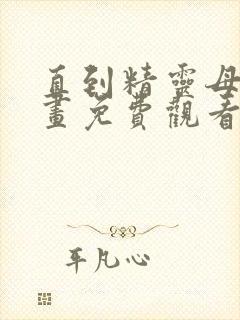 直到精靈母
畫免費觀看
平凡心